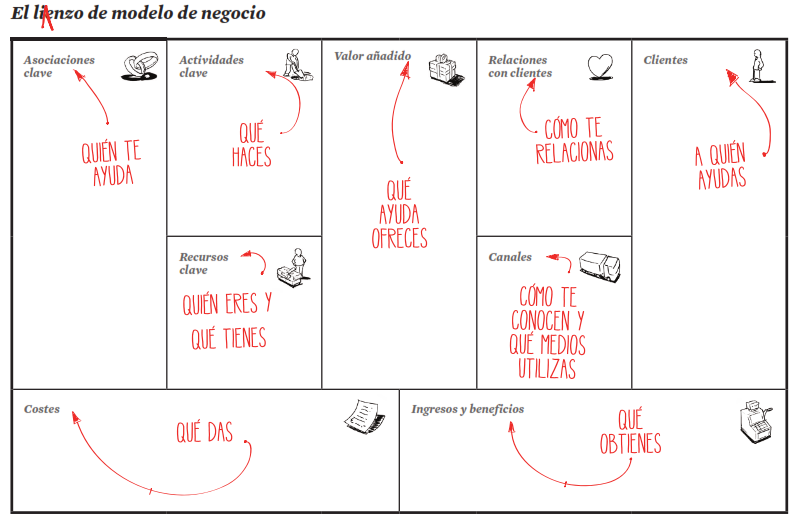 El lienzo de modelo de negocio
Asociaciones
clave
QUIÉN TE
AYUDA
Actividades
clave
QUÉ
HACES
Recursos
clave
QUIÉN ERES Y
QUÉ TIENES
Valor añadido
QUÉ
AYUDA
OFRECES
Relaciones
con clientes
CÓMO TE
RELACIONAS
Canales
CÓMO TE
CONOCEN Y
QUÉ MEDIOS
UTILIZAS
Clientes
A QUIÉN
AYUDAS
Costes
QUÉ DAS
Ingresos y beneficios
QUÉ
OBTIENES